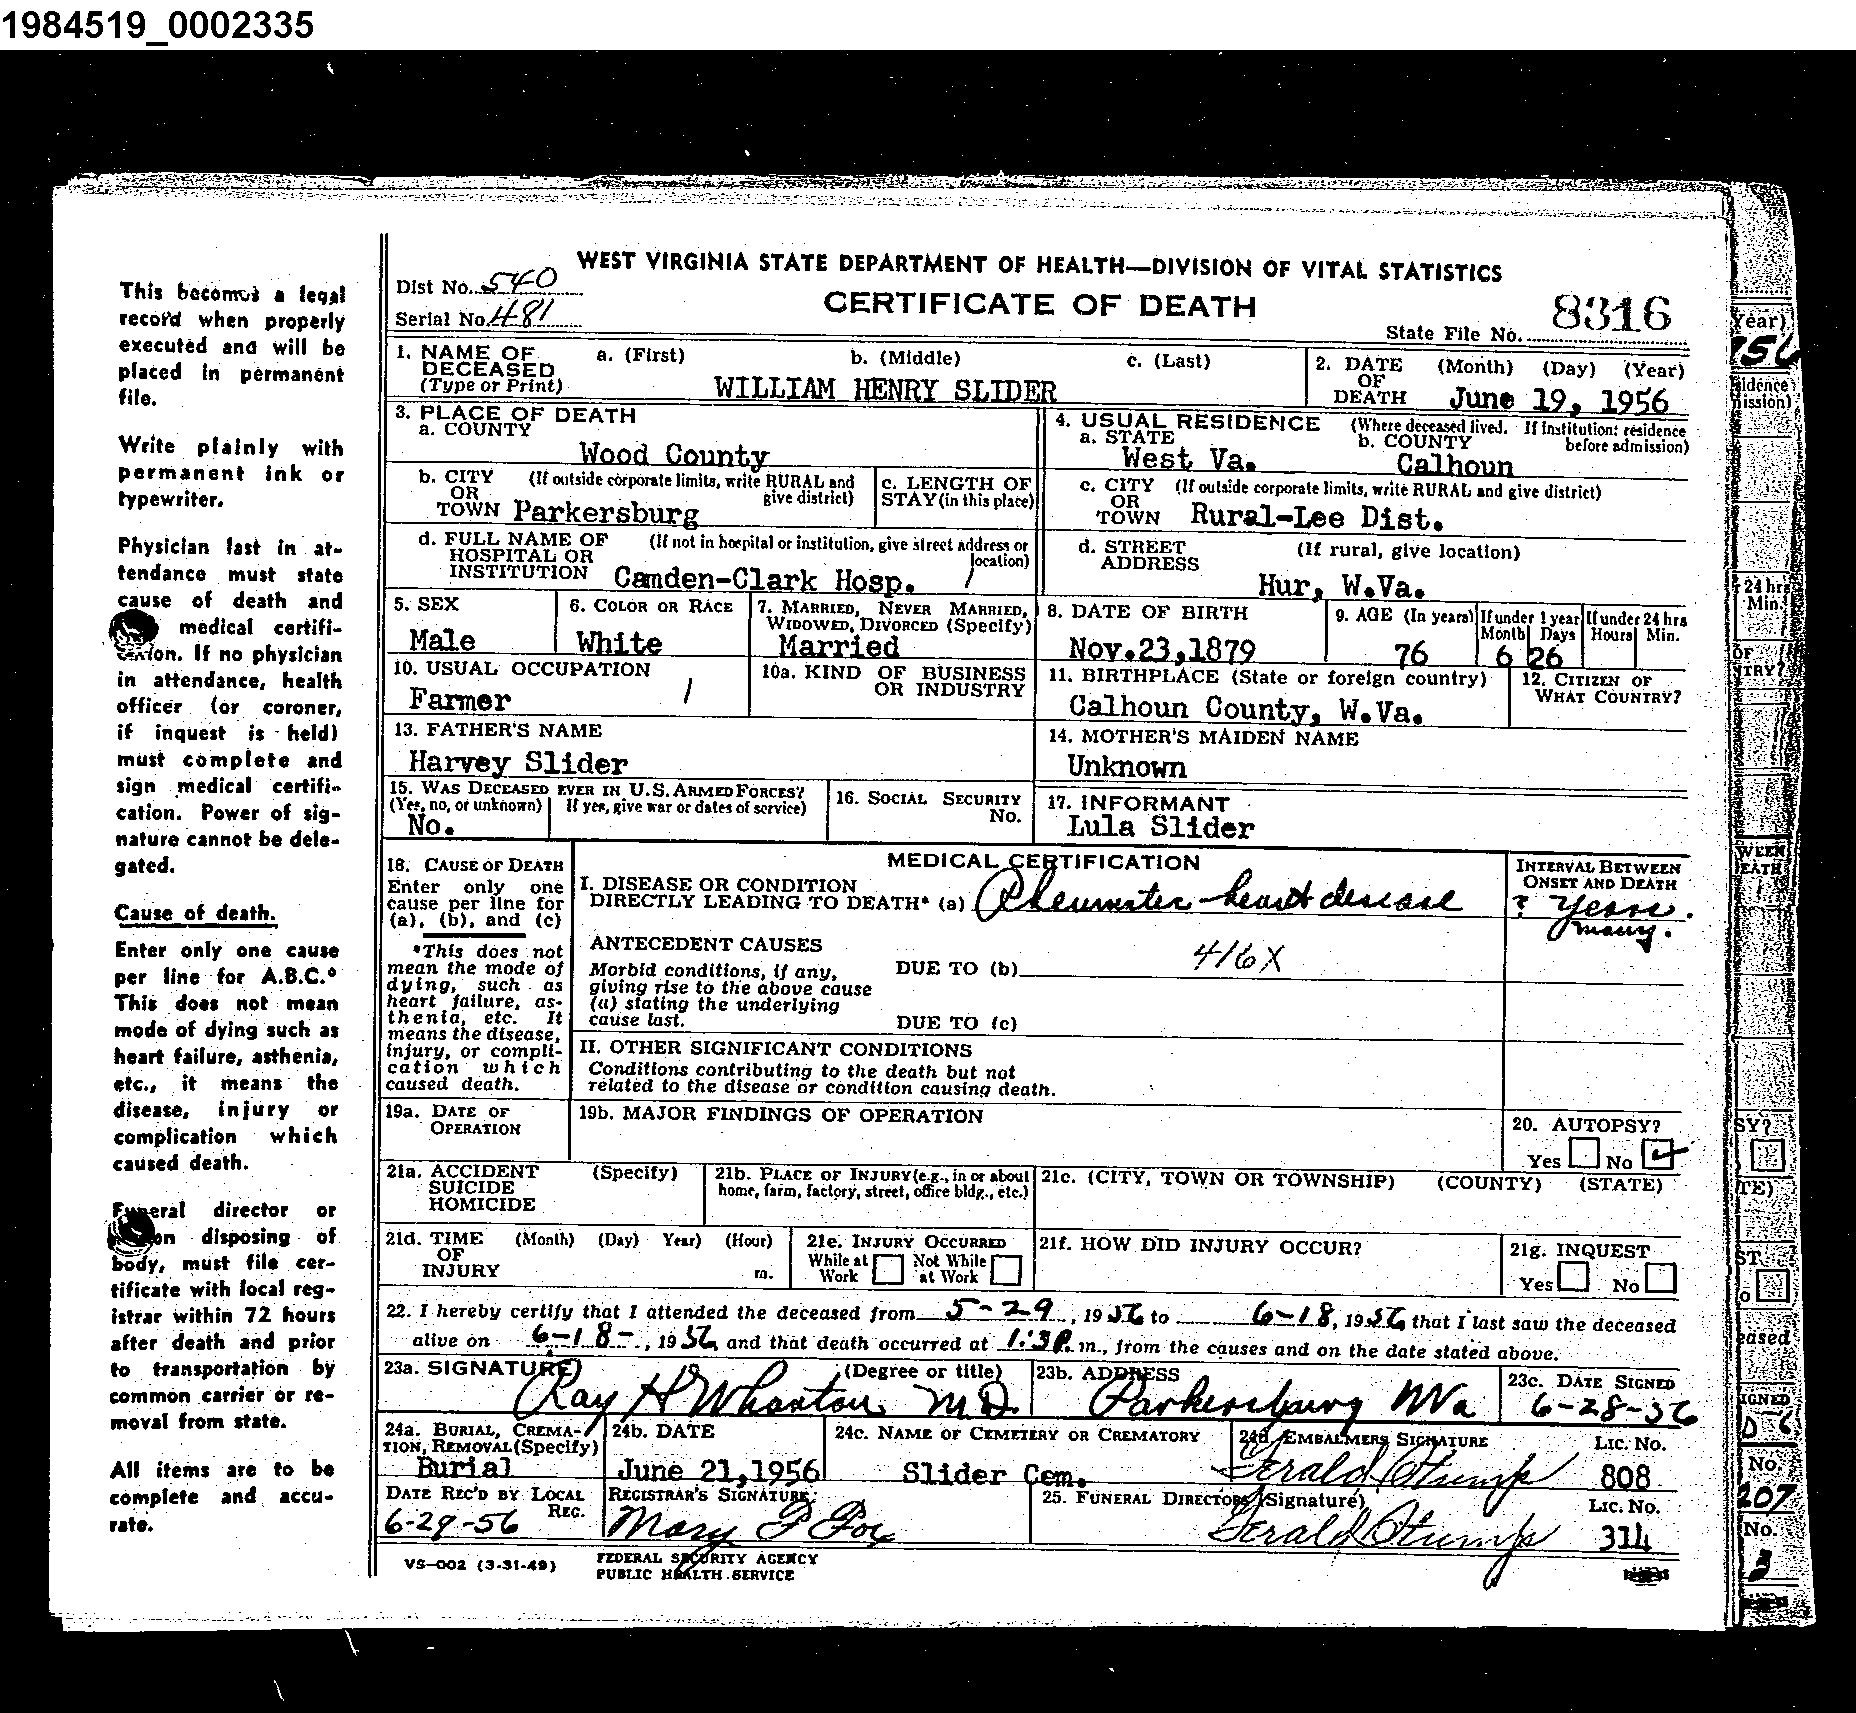 1984519_0002335
This becomes a legal
record when properly
executed and will be
placed in permanent
file.
Write plainly with
permanent ink or
typewriter.
Physician last in at-
tendance must state
cause of death and
medical certifi-
cation. If no physician
in attendance, health
officer (or coroner,
if inquest is held)
must complete and
sign medical certifi-
cation. Power of sig-
nature cannot be dele-
gated.
Cause of death.
Enter only one cause
per line for A.B.C.*
This does not mean
mode of dying such as
heart failure, asthenia,
etc., it means the
disease, injury or
complication which
caused death.
Funeral director or
person disposing of
body, must file cer-
tificate with local reg-
istrar within 72 hours
after death and prior
to transportation by
common carrier or re-
moval from state.
All items are to be
complete and accu-
rate.
WEST VIRGINIA STATE DEPARTMENT OF HEALTH—DIVISION OF VITAL STATISTICS
Dist No. 540
CERTIFICATE OF DEATH
Serial No. 481
State File No. 8316
1. NAME OF DECEASED (Type or Print) a. (First) b. (Middle) c. (Last)
WILLIAM HENRY SLIDER
2. DATE OF DEATH (Month) (Day) (Year)
June 19, 1956
3. PLACE OF DEATH
a. COUNTY
Wood County
4. USUAL RESIDENCE (Where deceased lived. If institution: residence before admission)
a. STATE West Va. b. COUNTY Calhoun
b. CITY OR TOWN (If outside corporate limits, write RURAL and give district)
Parkersburg
c. LENGTH OF STAY (in this place)
c. CITY OR TOWN (If outside corporate limits, write RURAL and give district)
Rural-Lee Dist.
d. FULL NAME OF HOSPITAL OR INSTITUTION (If not in hospital or institution, give street address or location)
Camden-Clark Hosp. /
d. STREET ADDRESS (If rural, give location)
Hur, W.Va.
5. SEX
Male
6. COLOR OR RACE
White
7. MARRIED, NEVER MARRIED, WIDOWED, DIVORCED (Specify)
Married
8. DATE OF BIRTH
Nov.23,1879
9. AGE (In years)
76
If under 1 year
Month Days
6 26
If under 24 hrs
Hours Min.
10. USUAL OCCUPATION
Farmer /
10a. KIND OF BUSINESS OR INDUSTRY
11. BIRTHPLACE (State or foreign country)
Calhoun County, W.Va.
12. CITIZEN OF WHAT COUNTRY?
13. FATHER'S NAME
Harvey Slider
14. MOTHER'S MAIDEN NAME
Unknown
15. WAS DECEASED EVER IN U.S. ARMED FORCES?
(Yes, no, or unknown) If yes, give war or dates of service)
No.
16. SOCIAL SECURITY No.
17. INFORMANT
Lula Slider
18. CAUSE OF DEATH
Enter only one
cause per line for
(a), (b), and (c)
*This does not
mean the mode of
dying, such as
heart failure, as-
thenia, etc. It
means the disease,
injury, or compli-
cation which
caused death.
MEDICAL CERTIFICATION
I. DISEASE OR CONDITION
DIRECTLY LEADING TO DEATH* (a) Rheumatic heart disease
INTERVAL BETWEEN ONSET AND DEATH
? years.
many.
ANTECEDENT CAUSES
Morbid conditions, if any,
giving rise to the above cause
(a) stating the underlying
cause last.
DUE TO (b) 416X
DUE TO (c)
II. OTHER SIGNIFICANT CONDITIONS
Conditions contributing to the death but not
related to the disease or condition causing death.
19a. DATE OF OPERATION
19b. MAJOR FINDINGS OF OPERATION
20. AUTOPSY?
Yes No
21a. ACCIDENT SUICIDE HOMICIDE (Specify)
21b. PLACE OF INJURY (e.g., in or about home, farm, factory, street, office bldg., etc.)
21c. (CITY, TOWN OR TOWNSHIP) (COUNTY) (STATE)
21d. TIME OF INJURY (Month) (Day) Year) (Hour) m.
21e. INJURY OCCURRED
While at Work Not While at Work
21f. HOW DID INJURY OCCUR?
21g. INQUEST
Yes No
22. I hereby certify that I attended the deceased from 5-29, 1956 to 6-18, 1956 that I last saw the deceased
alive on 6-18-, 1956 and that death occurred at 1:30 m., from the causes and on the date stated above.
23a. SIGNATURE (Degree or title)
Ray H Wharton M.D.
23b. ADDRESS
Parkersburg W Va
23c. DATE SIGNED
6-28-56
24a. BURIAL, CREMATION, REMOVAL (Specify)
Burial
24b. DATE
June 21,1956
24c. NAME OF CEMETERY OR CREMATORY
Slider Cem.
24d. EMBALMERS SIGNATURE LIC. No.
Gerald Stump 808
DATE REC'D BY LOCAL REG.
6-29-56
REGISTRAR'S SIGNATURE
Mary P Fox
25. FUNERAL DIRECTORS (Signature) LIC. No.
Gerald Stump 314
VS-002 (3-31-49)
FEDERAL SECURITY AGENCY
PUBLIC HEALTH SERVICE